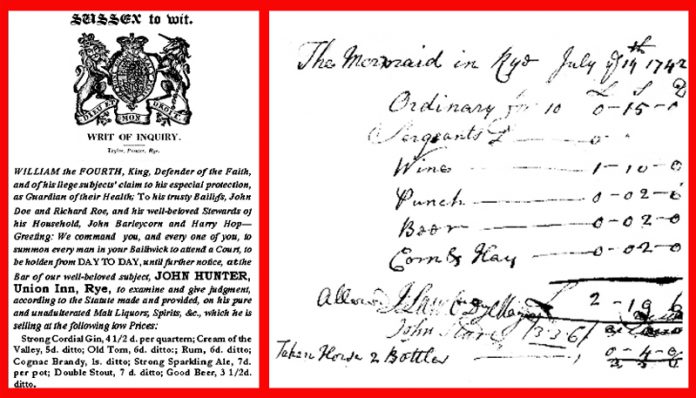 SUSSEX to wit.
DIEU ET MON DROIT
WRIT OF INQUIRY.
Taylor, Printer, Rye.
WILLIAM the FOURTH, King, Defender of the Faith,
and of his liege subjects' claim to his especial protection,
as Guardian of their Health; To his trusty Bailiffs, John
Doe and Richard Roe, and his well-beloved Stewards of
his Household, John Barleycorn and Harry Hop—
Greeting: We command you, and every one of you, to
summon every man in your Bailiwick to attend a Court, to
be holden from DAY TO DAY, until further notice, at the
Bar of our well-beloved subject, JOHN HUNTER,
Union Inn, Rye, to examine and give judgment,
according to the Statute made and provided, on his pure
and unadulterated Malt Liquors, Spirits, &c., which he is
selling at the following low Prices:
Strong Cordial Gin, 4 1/2 d. per quartern; Cream of the
Valley, 5d. ditto; Old Tom, 6d. ditto:; Rum, 6d. ditto;
Cognac Brandy, 1s. ditto; Strong Sparkling Ale, 7d.
per pot; Double Stout, 7 d. ditto; Good Beer, 3 1/2d.
ditto.
The Mermaid in Rye July ye 14th 1742
L S D
Ordinary for 10 0-15-0
Sergeants 0
Wine 1-10-0
Punch 0-02-6
Beer 0-02-0
Corn & Hay 0-02-0
Allow 2-19 6
John 3 3 6
Taken House 2 Bottles 0-4-0